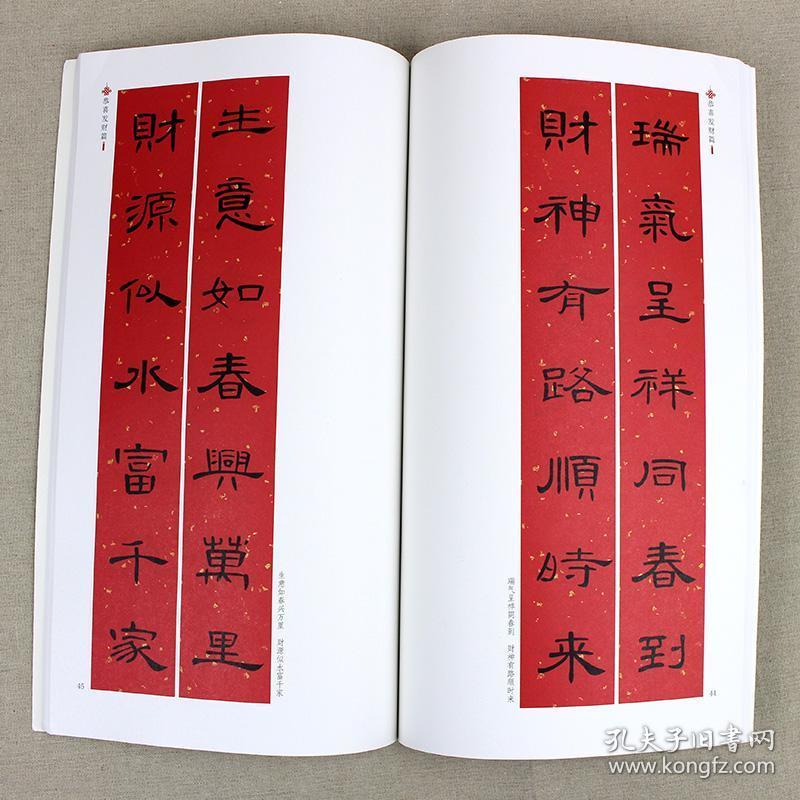 恭喜发财篇
瑞氣呈祥同春到
財神有路順時来
瑞气呈祥同春到　财神有路顺时来
44
生意如春興萬里
財源似水富千家
生意如春兴万里　财源似水富千家
恭喜发财篇
45
孔夫子旧书网
www.kongfz.com